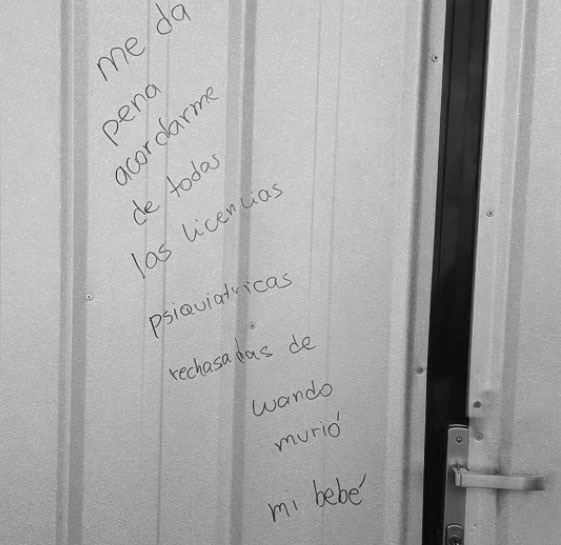 me da
pena
acordarme
de todas
las licencias
psiquiatricas
rechasadas de
cuando
murió
mi bebé